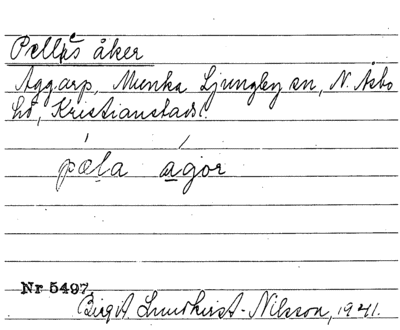 Pellės åker
Aggarp, Munka Ljungby sn, N. Åsbo
hd, Kristianstads l.
pæla ágor
Nr 5497.
Birgit Lundkvist-Nilsson, 1941.